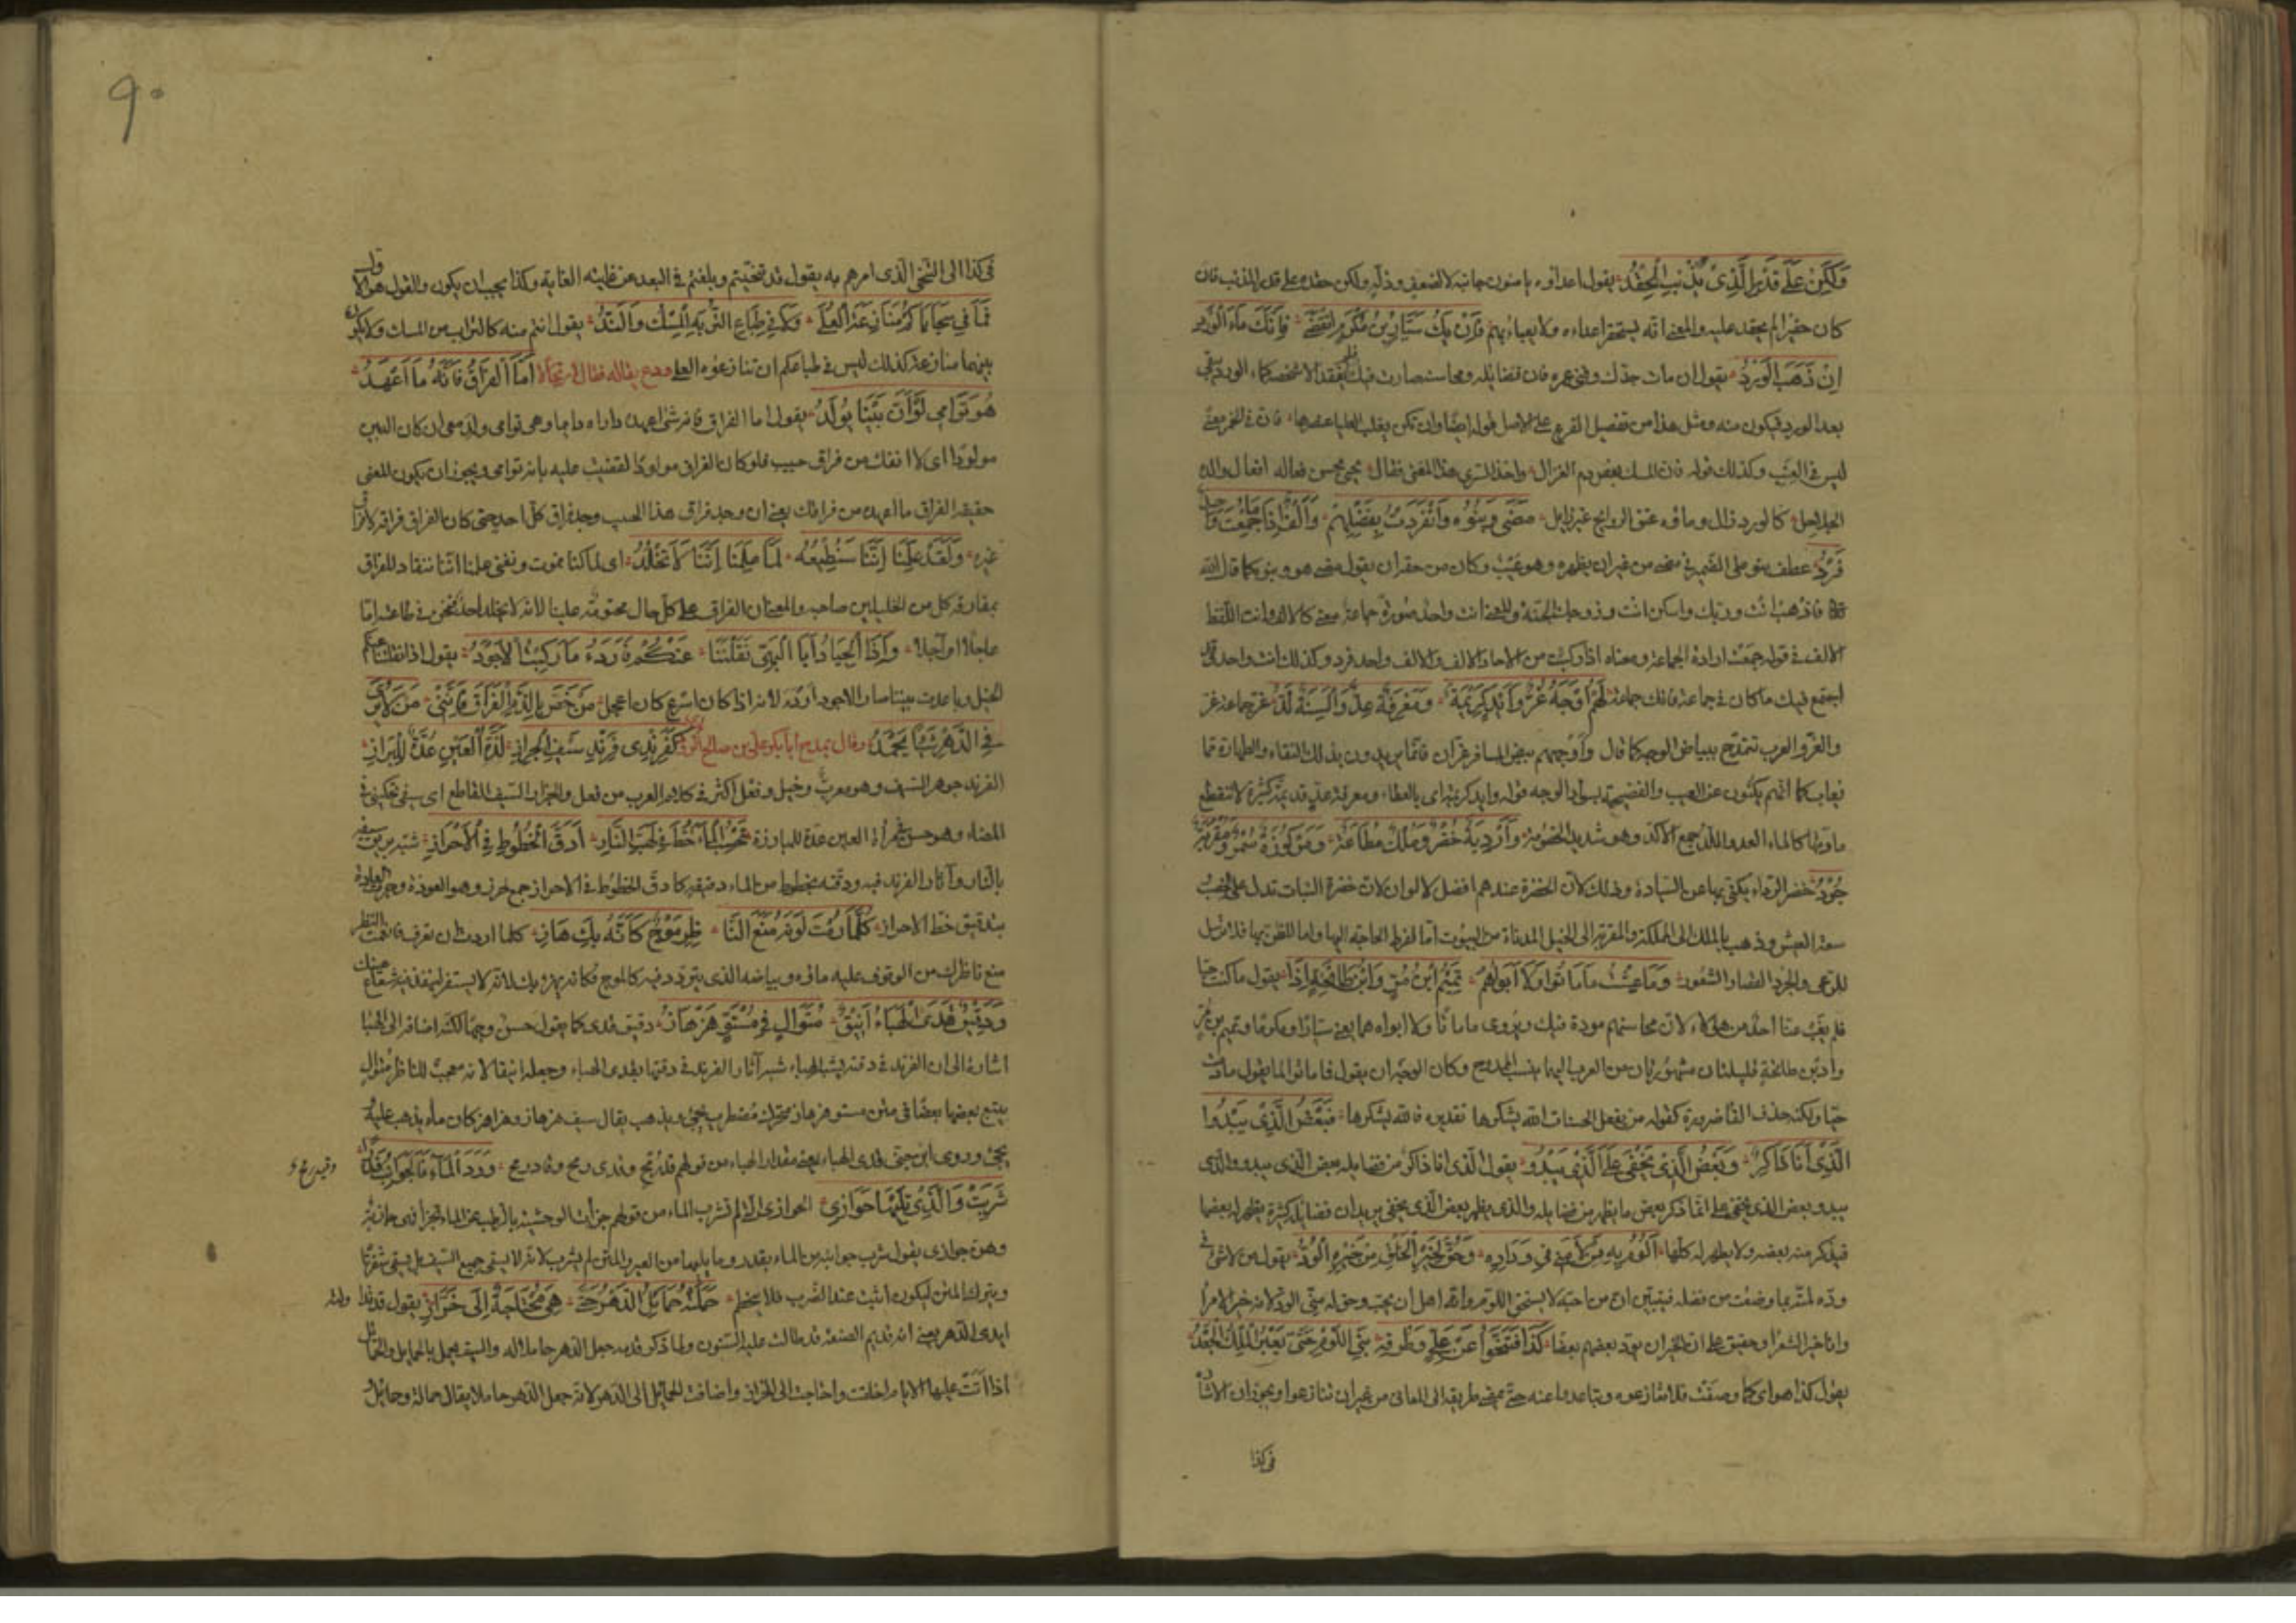 وَلٰكِنْ عَلَى قَدْرِ الَّذِي يُذْنِبُ الْحِقْدُ يقول اعداؤه يامنون جانبه لا لضعف وذلة ولكن حقده على قدر المذنب فان
كان حقيرا لم يحقد عليه والمعنى انه يستحقر اعداءه ولا يعباء بهم فَاِنْ يَكُ سَيَّارُ بْنُ مُكْرَمٍ انْقَضَى فَاِنَّكَ مَاءُ الْوَرْدِ
اِنْ ذَهَبَ الْوَرْدُ يقول ان مات جدك وفنى عمره فان فضايله ومحاسنه صارت فيك فلم يفقد الا شخصه كماء الورد يبقى
بعد الورد فيكون منه ومثل هذا من تفضيل الفرع على الاصل قوله ايضا وان تكن تغلب الغلباء عنصرها فان في الخمر معنى
ليس في العنب وكذلك قوله فان المسك بعض دم الغزال واخذ السرى هذا المعنى فقال يحيى بحسن فعاله افعال والده
الحلاحل كالورد زال وماؤه عبق الروايح غير زايل مَضَى وَبَنُوهُ وَانْفَرَدْتَ بِفَضْلِهِمْ وَاَلْفٌ اِذَا مَا جُمِّعَتْ وَاحِدٌ
فَرْدُ عطف بنوه على الضمير في مضى من غير ان يظهره وهو عيب وكان من حقه ان يقول مضى هو وبنوه كما قال الله
فاذهب انت وربك واسكن انت وزوجك الجنة والمعنى انت واحد صورة جماعة معنى كالالف وانث اللفظ
الالف في قوله جمعت ارادة الجماعة ومعناه اذا ركبت من الاحاد الالف والالف واحد فرد وكذلك انت واحد قد
اجتمع فيك ما كان في جماعة فانك جماعة لَهُمْ اَوْجُهٌ غُرٌّ وَاَيْدٍ كَرِيمَةٌ وَمَعْرِفَةٌ عِدٌّ وَاَلْسِنَةٌ لُدُّ غر جماعة اغر
والغر والعرب تتمدح ببياض الوجه كما قال واوجههم بيض المسافر غران فانما يريدون بذلك النقاء والطهارة مما
يعاب كما انهم يكنون عن العيب والفضيحة بسواد الوجه قوله وايد كريمة اى بالعطاء ومعرفة عد قديمة كثيرة لا تنقطع
مادتها كالماء العد واللد جمع الالد وهو شديد الخصومة وَاَرْدِيَةٌ خُضْرٌ وَمُلْكٌ مُطَاعَةٌ وَمَرْكُوزَةٌ سُمْرٌ وَمُقْرَبَةٌ
جُرْدُ خضر الرداء يكنى بها عن السيادة وذلك لان الخضرة عندهم افضل الالوان لان خضرة النبات تدل على الخصب
سعة العيش وذهب بالملك الى المملكة والمقربة الى الخيل المدناة من البيوت اما لفرط الحاجة اليها واما للظن بها فلا ترسل
للرعى والجرد القصار الشعور وَمَا عِشْتَ مَا مَاتُوا وَلَا اَبَوَاهُمُ تَمِيمُ ابْنُ مُرٍّ وَابْنُ طَابِخَةٍ اُدُّ يقول ما كنت حيا
فلم يغب عنا احد من هؤلاء لان محاسنهم موجودة فيك ويروى ما ماتا ولا ابواه هما يعنى سيارا ومكرما وتميم بن مر
واد بن طابخة قبيلتان مشهورتان من العرب اليهما ينسب الممدوح وكان الوجه ان يقول فما ماتوا كما يقول ما دمت
حيا ولكنه حذف الفا ضرورة كقوله من يفعل الحسنات الله يشكرها تقديره فالله يشكرها فَبَعْضُ الَّذِي يَبْدُوا
الَّذِي اَنَا ذَاكِرٌ وَبَعْضُ الَّذِي يَخْفَى عَلَىَّ الَّذِي يَبْدُو يقول الذى انا ذاكره من فضايله بعض الذى يبدو والذى
يبدو بعض الذى يخفى على انما ذكر بعض ما يظهر من فضايله والذى يظهر بعض الذى يخفى يريد ان فضايله كثيرة يظهر له بعضها
فيذكر منه بعضه ولا يظهر له كلها اَلُومُ بِهِ مَنْ لَامَنِي فِي وَدَادِهِ وَحُقَّ لِخَيْرِ الْخَلْقِ مِنْ خَيْرِهِ الْوُدُّ يقول من لامنى في
وده لمته بما وصفت من فضله فيتبين ان من احبه لا يستحق اللوم وانه اهل ان يحب وحق له منى الود لانه خير الامرا
وانا خير الشعرا وحقيق على اهل الخير ان يود بعضهم بعضا كَذَا فَتَنَحَّوْا عَنْ عَلِىٍّ وَطُرْقِهِ بَنِي اللُّؤْمِ حَتَّى يَعْبُرَ الْمَلِكُ الْجَعْدُ
يقول كذا هو اى كما وصفت فلا تنازعوه وتباعدوا عنه حتى يمضى طريقه الى المعالى من غير ان تنازعوا ويجوز ان الاشارة
في كذا
٩٠
في كذا الى التنحى الذى امرهم به يقول قد تنحيتم وبلغتم في البعد عن غايته الغاية وكذا يجب ان يكون والقول هو الاول
فَمَا فِي سَجَايَاكُمْ مُنَازَعَةُ الْعُلَى وَلَا فِي طِبَاعِ التُّرْبَةِ الْمِسْكُ وَالنَّدُّ يقول انتم منه كالتراب من المسك ولا يكون
بينهما منازعة كذلك ليس في طباعكم ان تنازعوه العلى وودع صديقا له فقال ارتجالا اَمَّا الْفِرَاقُ فَاِنَّهُ مَا اَعْهَدُ
هُوَ تَوْاَمِي لَوْ اَنَّ بَيْنًا يُولَدُ يقول اما الفراق فانه شئ اعهده واراه دايما وهو توامى ولد معى ان كان البين
مولودا اى لا انفك من فراق حبيب فلو كان الفراق مولودا لقضيت عليه بانه توامى ويجوز ان يكون المعنى
حقيقة الفراق ما اعهده من فراقك يعنى ان وجد فراق هذا الحبيب وجد فراق كل احد حتى كان الفراق فراقه لا فراق
غيره وَلَقَدْ عَلِمْنَا اِنَّنَا سَنُطِيعُهُ لَمَّا عَلِمْنَا اِنَّنَا لَا نَخْلُدُ اى لما كنا نموت ونفنى علمنا اننا ننقاد للفراق
بمفارقة كل من الخليلين صاحبه والمعنى ان الفراق على كل حال محتومة علينا لانه لا يخلد احد فنحن في طاعته اما
عاجلا او آجلا وَاِذَا الْجِيَادُ اَبَا الْبَهِىِّ نَقَلْنَنَا عَنْكُمْ فَاَرْدَءُ مَا رَكِبْتُ الْاَجْوَدُ يقول اذا نقلتنا عنكم
الخيل وباعدت بيننا صار الاجود اردء لانه اذا كان اسرع كان اعجل مَنْ خَصَّ بِالذَّمِّ الْفِرَاقَ فَاِنَّنِي مَنْ لَا يَرَى
فِي الدَّهْرِ شَيْئًا يُحْمَدُ وقال يمدح ابا بكر على بن صالح كَفِرِنْدِى فِرِنْدُ سَيْفِي الْجُرَازِ لَذَّةُ الْعَيْنِ عُدَّةٌ لِلْبِرَازِ
الفرند جوهر السيف وهو معرب وفعل اكثر في كلام العرب من فعل والجراز السيف القاطع اى سيفي يحكينى في
المضاء وهو حسن في مرآة العين عدة للمبارزة تَحْسَبُ الْمَاءَ خُطَّ فِي لَهَبِ النَّارِ اَدَقَّ الْخُطُوطِ فِي الْاَحْرَازِ شبه بريق سيفه
بالنار وآثار الفرند فيه ودقته بخطوط من الماء دقيقة كادق الخطوط في الاحراز جمع حرز وهو العوذة وجرت العادة
بتدقيق خط الاحراز كُلَّمَا رُمْتَ لَوْنَهُ مَنَعَ النَّا ظِرَ مَوْجٌ كَاَنَّهُ بِكَ هَازِ كلما اردت ان تعرف فانعمت النظر
منع ناظرك من الوقوف عليه ماؤه وبياضه الذى يتردد فيه كالموج فكانه يهزء بك لانه لا يستقر لينفذ فيه شعاع عينك
وَدَقِيقٌ قِدَى الْهَبَاءِ اَنِيقٌ مُتَوَالٍ فِي مُسْتَوٍ هَزْهَازِ دقيق قدى كما يقول حسن وجها لكنه اضافه الى الهبا
اشارة الى ان الفرند في دقته يشبه الهباء شبه آثار الفرند في دقتها بقدى الهباء وجعله انيقا لانه معجب للناظر متوال
يتبع بعضها بعضا في متن مستو هزهاز متحرك مضطرب يجئ ويذهب يقال سيف هزهاز وهزاهز كان ماءه يذهب عليه
يجئ وروى ابن جنى قدى الهباء يعنى مقدار الهباء من قولهم قيد رمح وقدى رمح وقاد رمح وَرَدَ الْمَاءَ فَالْجَوَانِبُ قَدْرًا
وقيد رمح
شَرِبَتْ وَالَّذِي تَلِيهَا جَوَازِي الجوازى التى لم تشرب الماء من قولهم جزأت الوحشية بالرطب عن الماء تجزأ فهى جازئة
وهن جوازى يقول شرب جوانبه من الماء بقدر وما يليها من العير والمتن لم يشرب لانه لا يسقى جميع السيف بل يسقى شفرتا
ويترك المتن ليكون اثبت عند الضرب فلا ينحطم حَمَلَتْهُ حَمَائِلُ الدَّهْرِ حَتَّى هِىَ مُحْتَاجَةٌ اِلَى خَرَّازِ يقول
ايدى الدهر يعنى انه قديم الصنعة قد طالت عليه السنون ولما ذكر قدمه جعل الدهر حاملا له والسيف يحمل بالحمايل والحمايل
اذا اتت عليها الايام اخلقت واحتاجت الى الخراز واضافت الحمائل الى الدهر لانه جعل الدهر حاملا يقال حمالة وحمائل